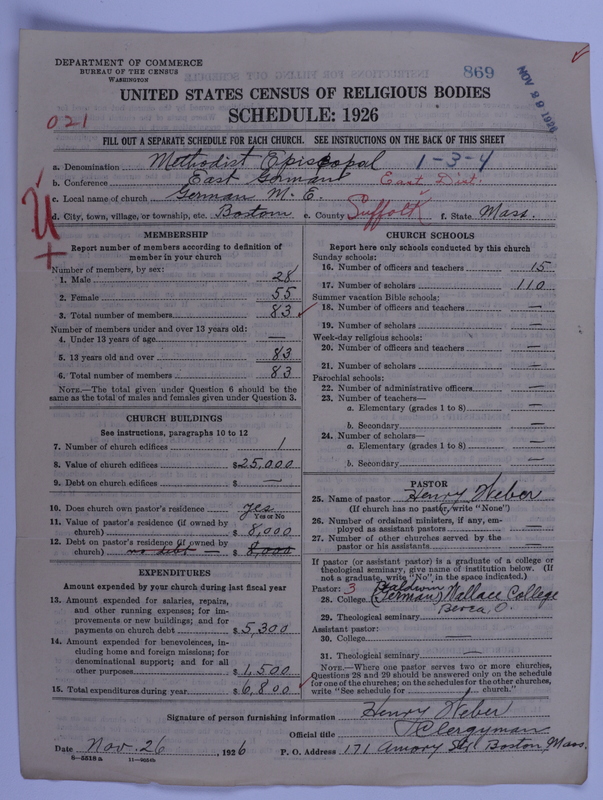 DEPARTMENT OF COMMERCE
BUREAU OF THE CENSUS
WASHINGTON
869
NOV 29 1926
UNITED STATES CENSUS OF RELIGIOUS BODIES
SCHEDULE: 1926
021
FILL OUT A SEPARATE SCHEDULE FOR EACH CHURCH. SEE INSTRUCTIONS ON THE BACK OF THIS SHEET
a. Denomination Methodist Episcopal 1-3-4
b. Conference East German East Dist.
c. Local name of church German M. E.
d. City, town, village, or township, etc. Boston e. County Suffolk f. State Mass.
MEMBERSHIP
Report number of members according to definition of
member in your church
Number of members, by sex:
1. Male 28
2. Female 55
3. Total number of members 83
Number of members under and over 13 years old:
4. Under 13 years of age —
5. 13 years old and over 83
6. Total number of members 83
NOTE.—The total given under Question 6 should be the
same as the total of males and females given under Question 3.
CHURCH BUILDINGS
See instructions, paragraphs 10 to 12
7. Number of church edifices 1
8. Value of church edifices $25,000
9. Debt on church edifices $ —
10. Does church own pastor's residence yes
Yes or No
11. Value of pastor's residence (if owned by
church) $8,000
12. Debt on pastor's residence (if owned by
church) no debt — $8,000
EXPENDITURES
Amount expended by your church during last fiscal year
13. Amount expended for salaries, repairs,
and other running expenses; for im-
provements or new buildings; and for
payments on church debt $5,300
14. Amount expended for benevolences, in-
cluding home and foreign missions; for
denominational support; and for all
other purposes $1,500
15. Total expenditures during year $6,800
CHURCH SCHOOLS
Report here only schools conducted by this church
Sunday schools:
16. Number of officers and teachers 15
17. Number of scholars 110
Summer vacation Bible schools:
18. Number of officers and teachers —
19. Number of scholars —
Week-day religious schools:
20. Number of officers and teachers —
21. Number of scholars —
Parochial schools:
22. Number of administrative officers —
23. Number of teachers—
a. Elementary (grades 1 to 8) —
b. Secondary —
24. Number of scholars—
a. Elementary (grades 1 to 8) —
b. Secondary —
PASTOR
25. Name of pastor Henry Weber
(If church has no pastor, write "None")
26. Number of ordained ministers, if any, em-
ployed as assistant pastors —
27. Number of other churches served by the
pastor or his assistants —
If pastor (or assistant pastor) is a graduate of a college or
theological seminary, give name of institution below. (If
not a graduate, write "No" in the space indicated.)
Pastor: 3 Baldwin
28. College (German) Wallace College
Berea, O.
29. Theological seminary
Assistant pastor:
30. College —
31. Theological seminary —
NOTE.—Where one pastor serves two or more churches,
Questions 28 and 29 should be answered only on the schedule
for one of the churches; on the schedules for the other churches,
write "See schedule for church."
Signature of person furnishing information Henry Weber
Official title Clergyman
Date Nov. 26, 1926 P. O. Address 171 Amory St. Boston, Mass.